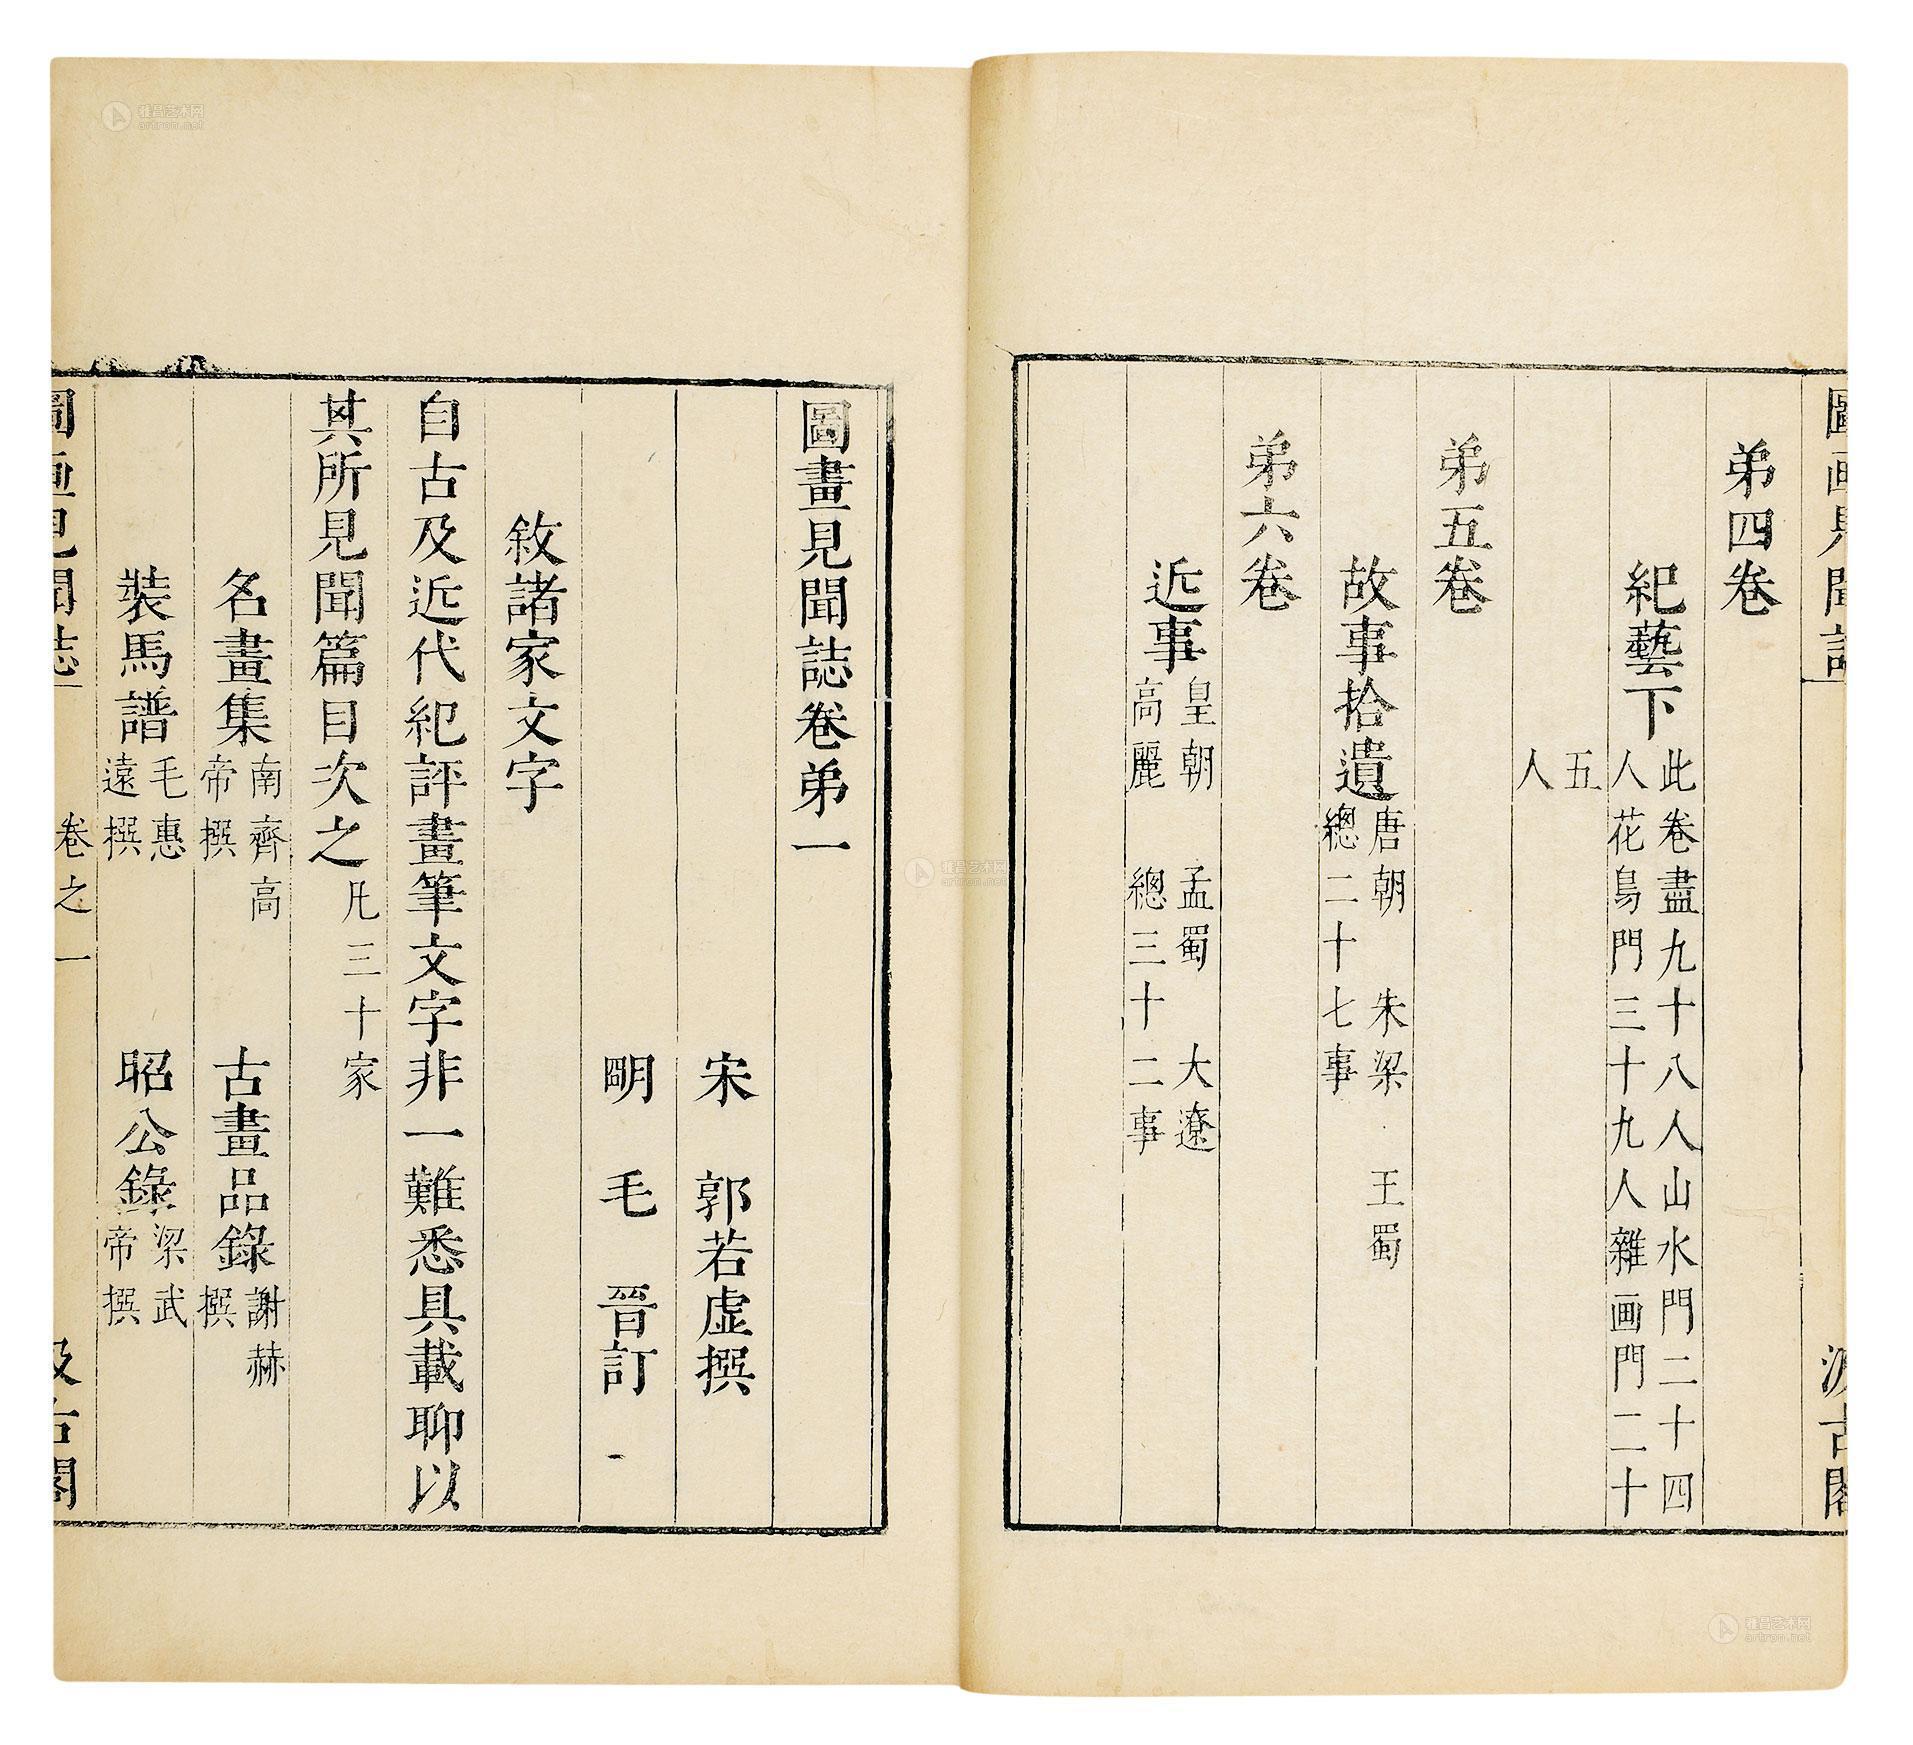 圖画見聞誌 汲古閣
弟四卷
紀藝下 此卷盡九十八人山水門二十四
人花鳥門三十九人雜画門二十
五
人
弟五卷
故事拾遺 唐朝 朱梁 王蜀
總二十七事
弟六卷
近事 皇朝 孟蜀 大遼
高麗 總三十二事
圖畫見聞誌卷弟一
宋 郭若虛撰
明 毛 晉訂
敘諸家文字
自古及近代紀評畫筆文字非一難悉具載聊以
其所見聞篇目次之 凡三十家
名畫集 南齊高帝撰 古畫品錄 謝赫撰
裝馬譜 毛惠遠撰 昭公錄 梁武帝撰
圖画見聞誌 卷之一 汲古閣
雅昌艺术网
artron.net
雅昌艺术网
artron.net
雅昌艺术网
artron.net